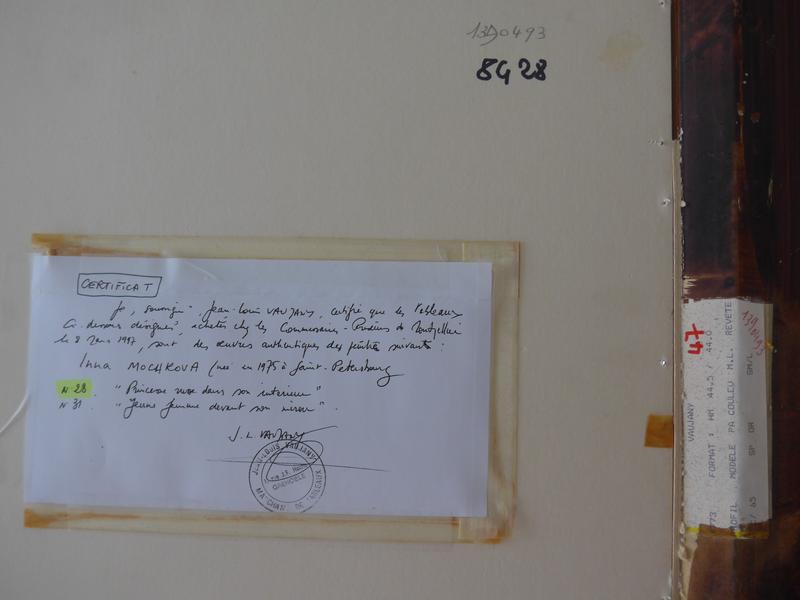 1390493
8G28
CERTIFICAT
Je, soussigné Jean-Louis VAUJANY, certifie que les tableaux
ci-dessous désignés, achetés chez les Commissaires-Priseurs de Montpellier
le 8 Mars 1997, sont des œuvres authentiques des peintres suivants :
Inna MOCHKOVA (née en 1975 à Saint-Petersbourg
N°28 "Princesse russe dans son intérieur"
N°31 "Jeune femme devant son miroir".
J.L. VAUJANY
JEAN-LOUIS VAUJANY
GRENOBLE
MARCHAND DE TABLEAUX
47
VAUJANY
773 FORMAT : MM 44.5 / 44.0
ROFIL MODELE PA COULEU M.L. REVETE
/ 65 SP OR SM/L